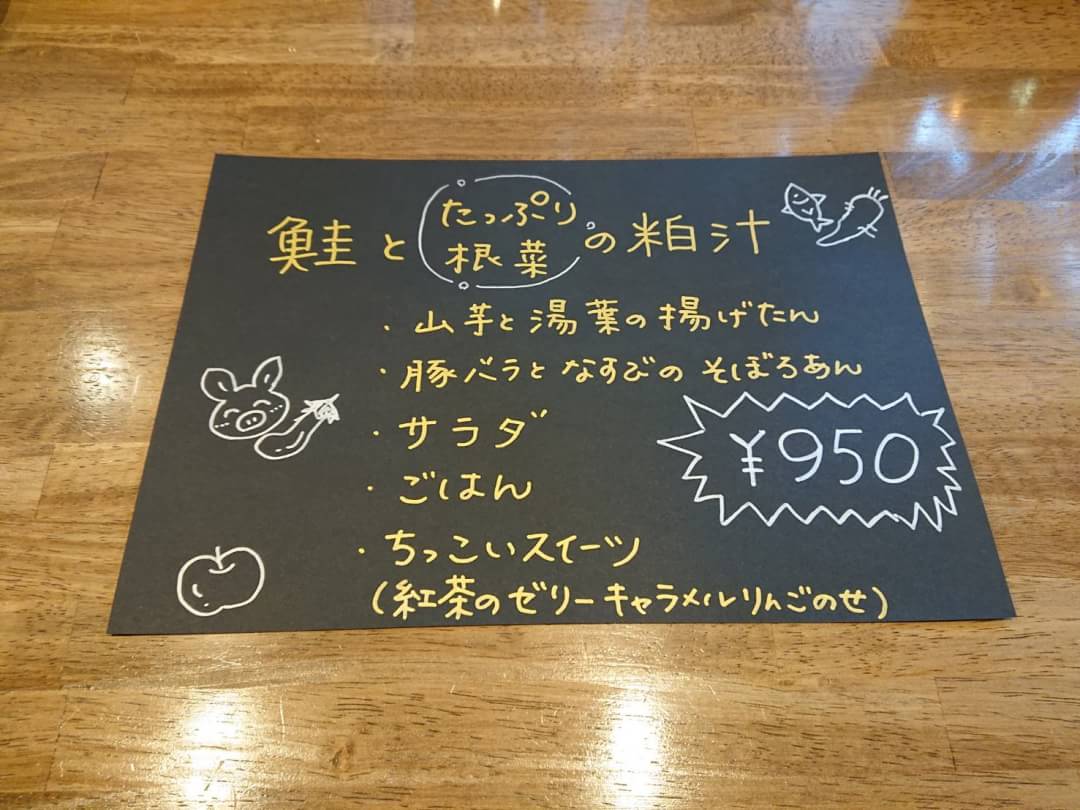 鮭とたっぷり根菜の粕汁
・山芋と湯葉の揚げたん
・豚バラとなすびのそぼろあん
・サラダ
・ごはん
¥950
・ちっこいスイーツ
(紅茶のゼリーキャラメルりんごのせ)